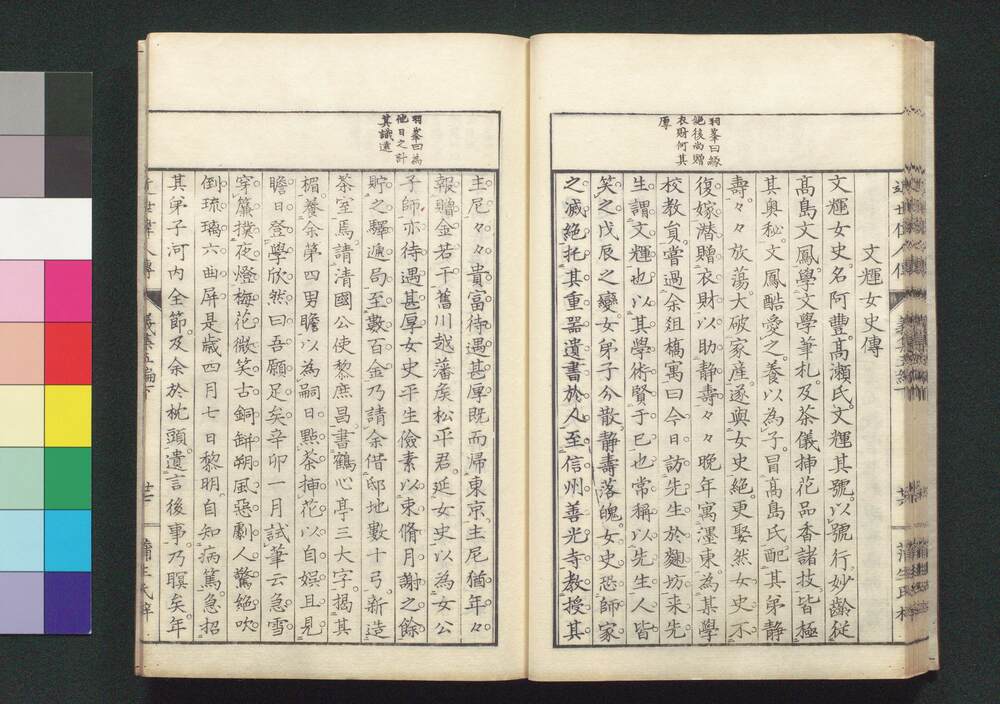 文輝女史傳
文輝女史名阿豐髙瀬氏文輝其號以號行妙齡従
髙島文鳳學文學筆札及茶儀挿花品香諸技皆極
其奥秘文鳳酷愛之養以為子冒髙島氏配其弟静
壽々々放蕩大破家産遂與女史絶更娶然女史不
復嫁潜贈衣財以助静壽々々晩年寓濹東為其學
校教員嘗過余俎橋寓曰今日訪先生於麴坊来先
生謂文輝也以其學術賢于已也常稱以先生人皆
笑之戊辰之變女弟子分散静壽落魄女史恐師家
之滅絶托其重器遺書於人至信州善光寺教授其
羽峯曰縁
絶後尚贈
衣財何其
厚
主尼々々貴富待遇甚厚既而帰東京主尼猶年々
報贈金若干舊川越藩矦松平君延女史以為女公
子師亦待遇甚厚女史平生儉素以束脩月謝之餘
貯之驛逓局至數百金乃請余借邸地數十弓新造
茶室焉請清國公使黎庶昌書鶴心亭三大字揭其
楣養余第四男瞻以為嗣日點茶挿花以自娯且見
瞻日登學欣然曰吾願足矣辛卯一月試筆云急雪
穿簾撲夜燈梅花微笑古銅缾朔風惡劇人驚絶吹
倒琉璃六曲屏是歳四月七日黎明自知病篤急招
其弟子河内全節及余於枕頭遺言後事乃瞑矣年
羽峯曰為
他日之計
其識遠